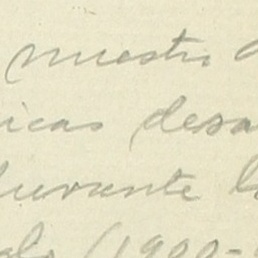 nuestro
icas desa
durante l
alo (1900-